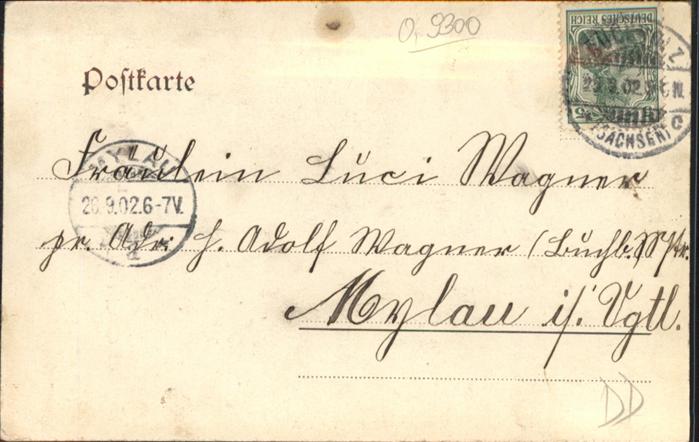 0,9300
DEUTSCHES REICH
5
23.9.02
(SACHSEN) C
Postkarte
MYLAU
26.9.02.6-7V.
Fräulein Luci Wagner
pr. Adr. H. Adolf Wagner (Buchb.
Mylau i/ Vgtl.
DD